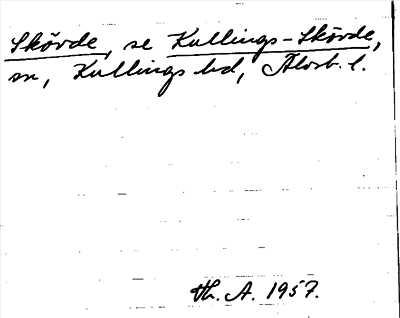 Skövde, se Kullings-Skövde,
sn, Kullings hd, Älvsb. l.
Th. A. 1957.